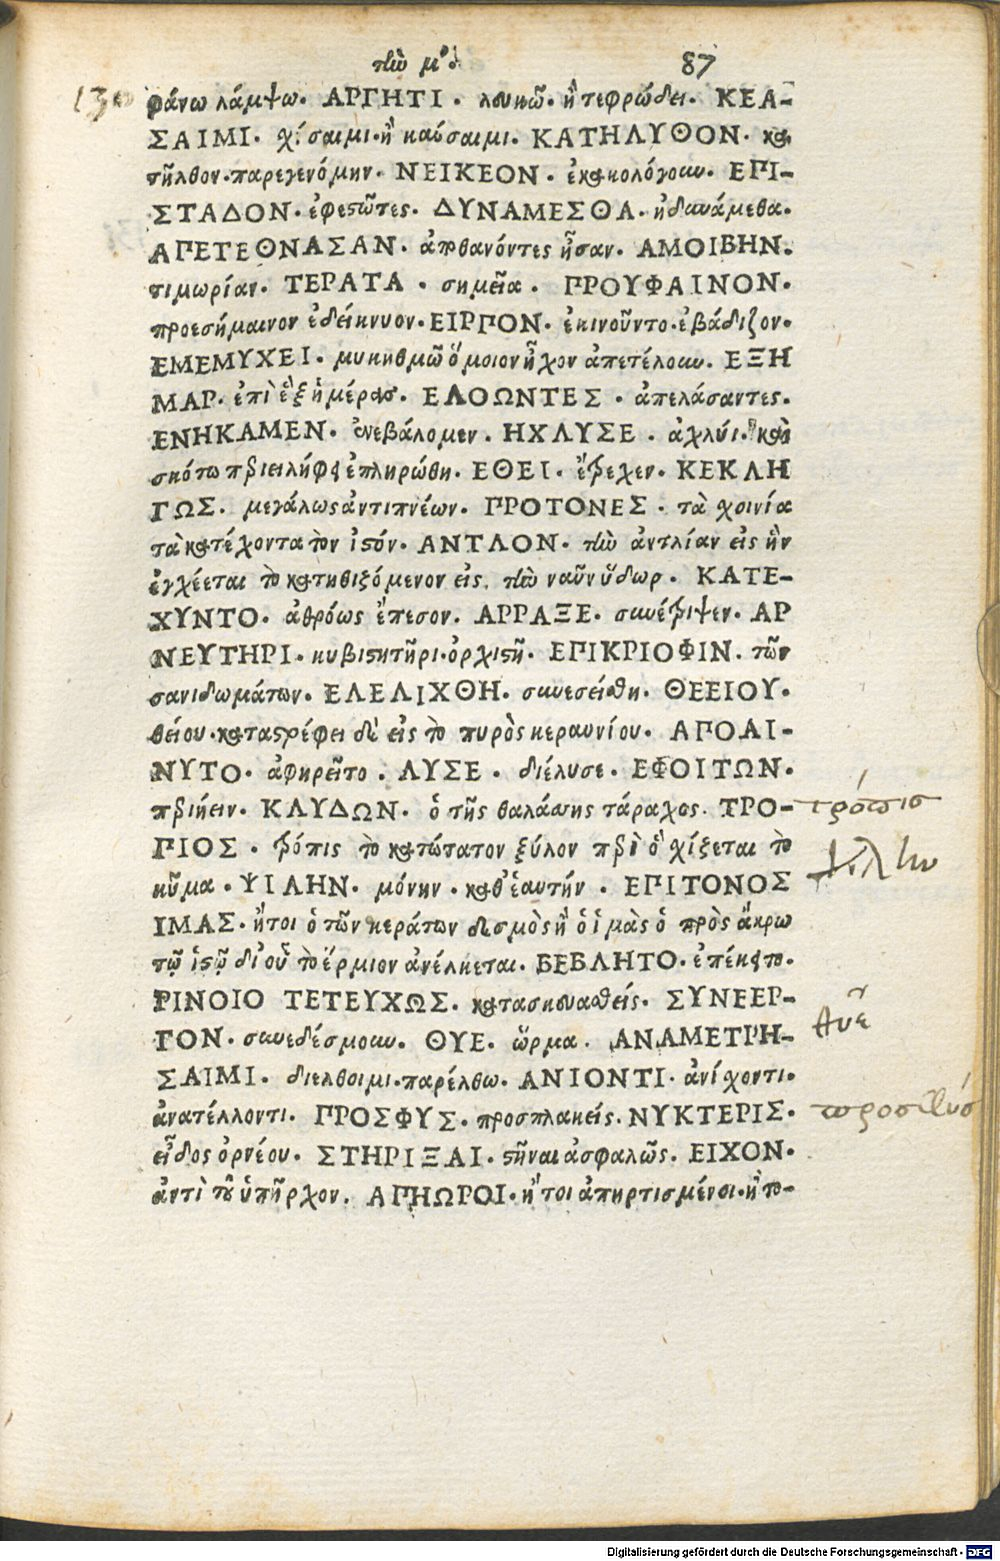 τῶ μ. 87
130 φάνω λάμψω. ΑΡΓΗΤΙ. λευκῷ. ἢ τεφρώδει. ΚΕΑ-
ΣΑΙΜΙ. χίσαιμι. ἢ καύσαιμι. ΚΑΤΗΛΥΘΟΝ. κα
τῆλθον. παρεγενόμην. ΝΕΙΚΕΟΝ. ἐκακολόγουν. ΕΠΙ-
ΣΤΑΔΟΝ. ἐφεστῶτες. ΔΥΝΑΜΕΣΘΑ. ἠδυνάμεθα.
ΑΠΕΤΕΘΝΑΣΑΝ. ἀποθανόντες ἦσαν. ΑΜΟΙΒΗΝ.
τιμωρίαν. ΤΕΡΑΤΑ. σημεῖα. ΠΡΟΥΦΑΙΝΟΝ.
προεσήμαινον ἐδείκνυον. ΕΙΡΠΟΝ. ἐκινοῦντο. ἐβάδιζον.
ΕΜΕΜΥΧΕΙ. μυκηθμῶ ὅμοιον ἦχον ἀπετέλουν. ΕΞΗ
ΜΑΡ. ἐπὶ ἓξ ἡμέρας. ΕΛΟΩΝΤΕΣ. ἀπελάσαντες.
ΕΝΗΚΑΜΕΝ. ἐνεβάλομεν. ΗΧΛΥΣΕ. ἀχλύι. καὶ
σκότω περιειλήφθη ἐπληρώθη. ΕΘΕΙ. ἔτρεχεν. ΚΕΚΛΗ
ΓΩΣ. μεγάλως ἀντιπνέων. ΠΡΟΤΟΝΕΣ. τὰ χοινία
τὰ κατέχοντα τὸν ἱστόν. ΑΝΤΛΟΝ. τὴν ἀντλίαν εἰς ἣν
ἐγχέεται τὸ κατηθιζόμενον εἰς. τὴν ναῦν ὕδωρ. ΚΑΤΕ-
ΧΥΝΤΟ. ἀθρόως ἔπεσον. ΑΡΡΑΞΕ. συνέτριψεν. ΑΡ
ΝΕΥΤΗΡΙ. κυβιστητῆρι. ὀρχιστῇ. ΕΠΙΚΡΙΟΦΙΝ. τῶν
σανιδωμάτων. ΕΛΕΛΙΧΘΗ. συνεσείσθη. ΘΕΕΙΟΥ.
θείου. καταστρέφει δὲ εἰς τὸ πυρὸς κεραυνίου. ΑΠΟΑΙ-
ΝΥΤΟ. ἀφηρεῖτο. ΛΥΣΕ. διέλυσε. ΕΦΟΙΤΩΝ.
περιήειν. ΚΛΥΔΩΝ. ὁ τῆς θαλάσσης τάραχος. ΤΡΟ- τρόπισ
ΠΙΟΣ. τρόπις τὸ κατώτατον ξύλον περὶ ὃ χίζεται τὸ
κῦμα. ΨΙΛΗΝ. μόνην. καθ' ἑαυτήν. ΕΠΙΤΟΝΟΣ ψιλὴν
ΙΜΑΣ. ἤτοι ὁ τῶν κεράτων δεσμὸς ἢ ὁ ἱμὰς ὁ πρὸς ἄκρω
τῷ ἱστῷ δι' οὗ τὸ ἕρμιον ἀνέλκεται. ΒΕΒΛΗΤΟ. ἐπέκειτο.
ΡΙΝΟΙΟ ΤΕΤΕΥΧΩΣ. κατασκευασθείς. ΣΥΝΕΕΡ-
ΓΟΝ. συνεδέσμουν. ΘΥΕ. ὥρμα. ΑΝΑΜΕΤΡΗ- θῦε
ΣΑΙΜΙ. διελθοιμι. παρέλθω. ΑΝΙΟΝΤΙ. ἀνίχοντι.
ἀνατέλλοντι. ΠΡΟΣΦΥΣ. προσπλακείς. ΝΥΚΤΕΡΙΣ. προσφύσ
εἶδος ὀρνέου. ΣΤΗΡΙΞΑΙ. στῆναι ἀσφαλῶς. ΕΙΧΟΝ.
ἀντὶ τοῦ ὑπῆρχον. ΑΠΗΩΡΟΙ. ἤτοι ἀπηρτισμένοι. ἢ πο-
Digitalisierung gefördert durch die Deutsche Forschungsgemeinschaft - DFG